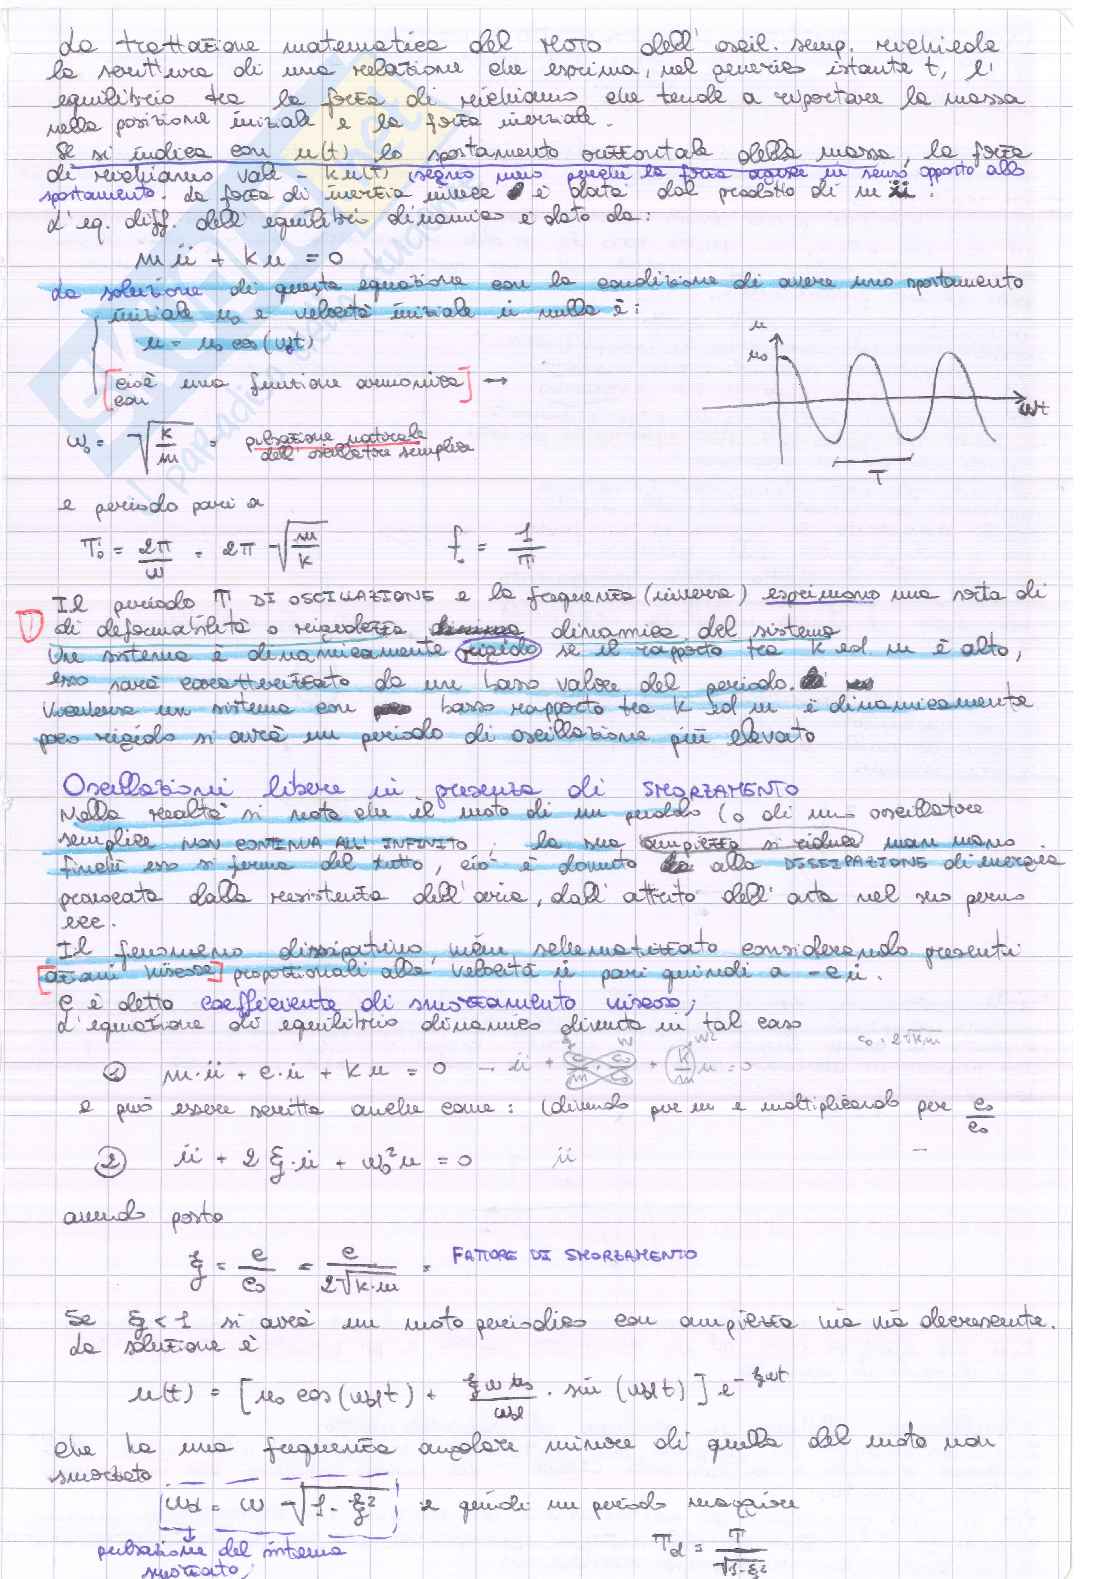 La trattazione matematica del MOTO dell'oscil. semp. richiede
la scrittura di una relazione che esprima, nel generico istante t, l'
equilibrio tra la forza di richiamo che tende a riportare la massa
nella posizione iniziale e la forza inerziale.
Se si indica con u(t) lo spostamento orizzontale della massa, la forza
di richiamo vale - k u(t) (segno meno perché la forza agisce in senso opposto allo
spostamento. La forza di inerzia invece è data dal prodotto di m ü.
L'eq. diff. dell'equilibrio dinamico è dato da:
m ü + k u = 0
La soluzione di questa equazione con la condizione di avere uno spostamento
iniziale u₀ e velocità iniziale u̇ nulla è:
u = u₀ cos(ω₀t)
[cioè una funzione armonica] →
con
u
u₀
ωt
T
ω₀ = √(k/m) = pulsazione naturale
dell'oscillatore semplice
e periodo pari a
T₀ = 2π/ω = 2π √(m/k)
f₀ = 1/T
Il periodo T DI OSCILLAZIONE e la frequenza (inversa) esprimono una sorta di
di deformabilità o rigidezza dinamica del sistema
Un sistema è dinamicamente rigido se il rapporto tra k ed m è alto,
esso sarà caratterizzato da un basso valore del periodo.
Viceversa un sistema con basso rapporto tra k ed m è dinamicamente
poco rigido si avrà un periodo di oscillazione più elevato
Oscillazioni libere in presenza di SMORZAMENTO
Nella realtà si nota che il moto di un pendolo (o di uno oscillatore
semplice NON CONTINUA ALL'INFINITO, la sua ampiezza si riduce man mano
finché esso si ferma del tutto, ciò è dovuto alla DISSIPAZIONE di energia
provocata dalla resistenza dell'aria, dall'attrito dell'asta nel suo perno
ecc.
Il fenomeno dissipativo, vien schematizzato considerando presenti
[azioni viscose] proporzionali alla velocità u̇ pari quindi a - c u̇.
C è detto coefficiente di smorzamento viscoso;
L'equazione di equilibrio dinamico diventa in tal caso
c₀ = 2√k·m
① m·ü + c·u̇ + k u = 0 → ü + c/m · c₀/c₀ u̇ + (k/m) u = 0
e può essere scritta anche come: (dividendo per m e moltiplicando per c₀/c₀
② ü + 2 ξ·u̇ + ω₀² u = 0 ü
avendo posto
ξ = c/c₀ = c/2√k·m = FATTORE DI SMORZAMENTO
Se ξ < 1 si avrà un moto periodico con ampiezza via via decrescente.
La soluzione è
u(t) = [u₀ cos(ωd t) + ξ ω u₀/ωd · sin (ωd t)] e^-ξωt
che ha una frequenza angolare minore di quella del moto non
smorzato
ωd = ω √1 - ξ² e quindi un periodo maggiore
pulsazione del sistema
smorzato,
Td = T/√1-ξ²